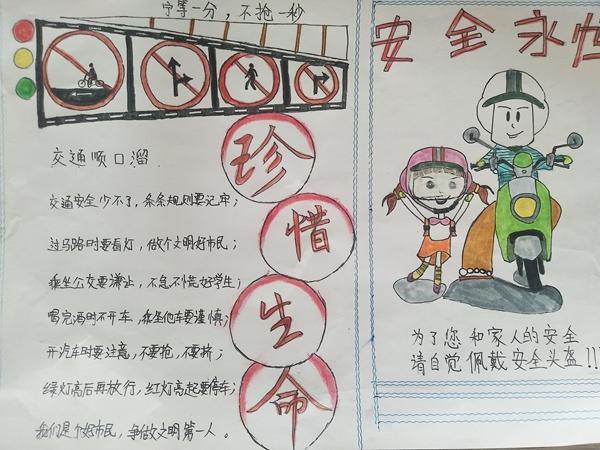 宁等一分，不抢一秒
安全永恒
交通顺口溜
珍惜生命
交通安全少不了，条条规则要记牢；
过马路时要看灯，做个文明好市民；
乘坐公交要谦让，不急不慌好学生；
喝完酒时不开车，乘坐他车要谨慎；
开汽车时要注意，不要抢，不要挤；
绿灯亮后再放行，红灯亮起要停车；
我们是个好市民，争做文明第一人。
为了您和家人的安全
请自觉佩戴安全头盔!!!